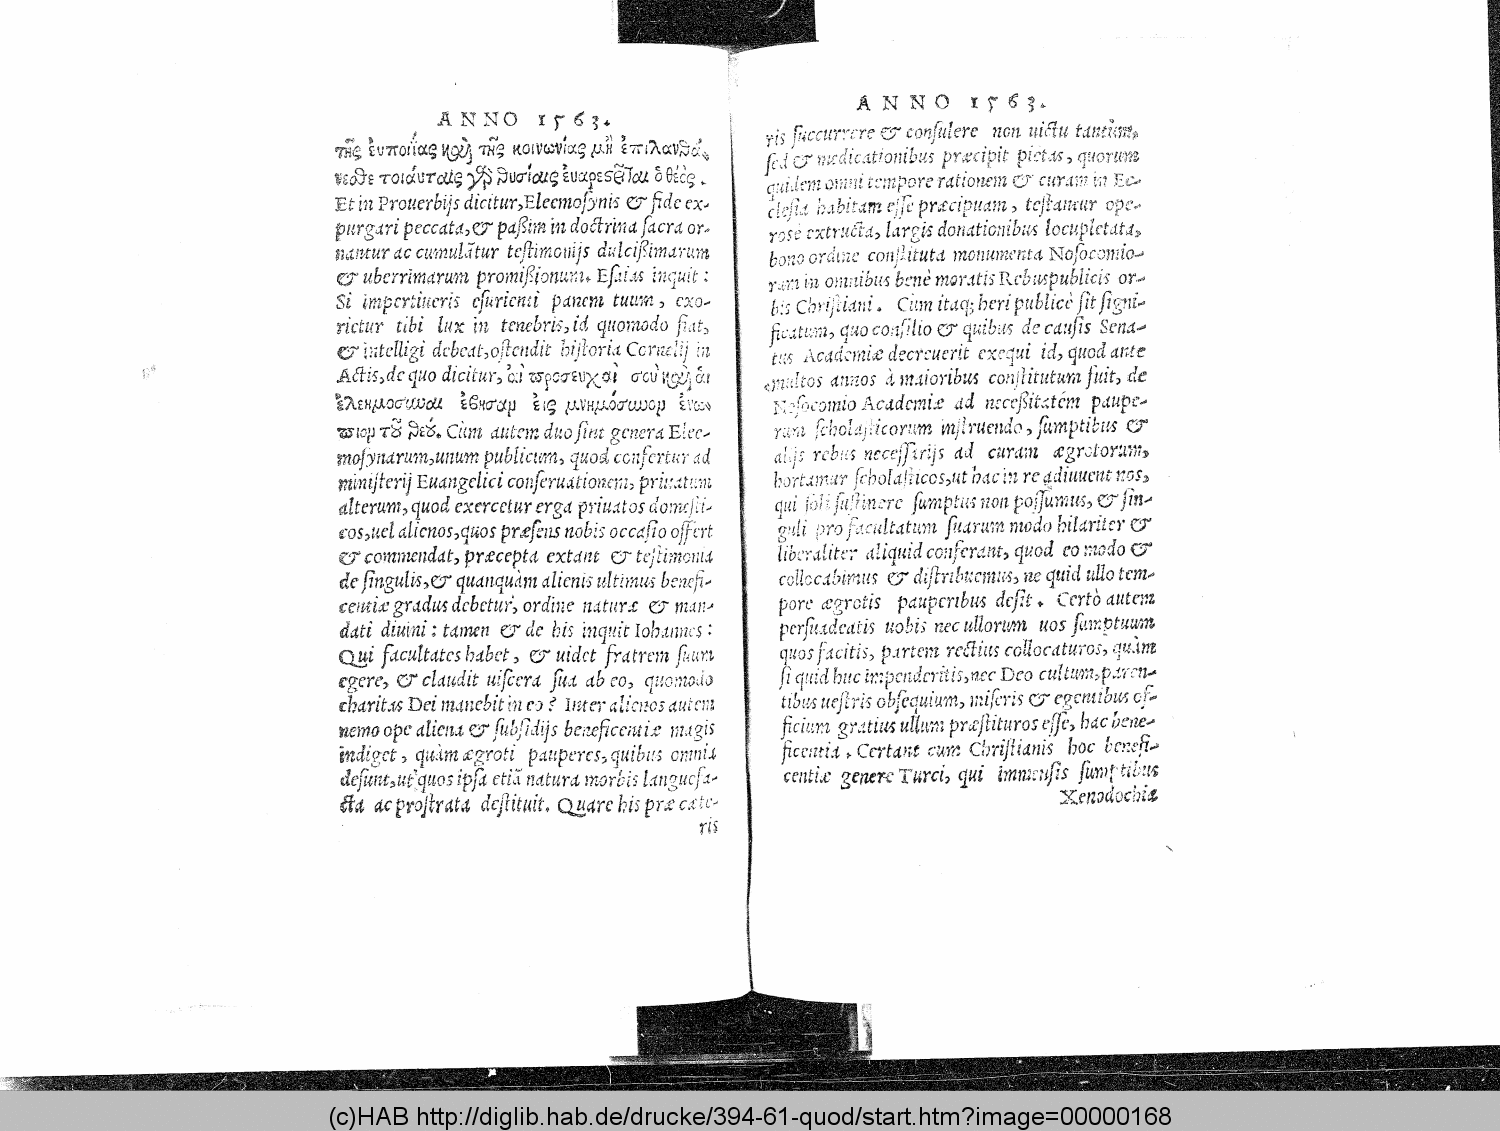 ANNO 1563.
τῆς ἐυποιΐας καὶ τῆς κοινωνίας μὴ ἐπιλανθά,
νεσθε τοιάυταις γὰρ θυσίαις ἐυαρεστεῖται ὁ θεὸς.
Et in Prouerbijs dicitur, Eleemosynis & fide ex-
purgari peccata, & paßim in doctrina sacra or-
nantur ac cumulātur testimonijs dulcißimarum
& uberrimarum promißionum. Esaias inquit:
Si impertiueris esurienti panem tuum, exo-
rietur tibi lux in tenebris, id quomodo fiat,
& intelligi debeat, ostendit historia Cornelij in
Actis, de quo dicitur, ἁι προσευχαὶ σοῦ καὶ ἁι
ἐλεημοσύναι ἐβησαν ἐις μνημόσυνον ἐνώ-
πιον τοῦ θεοῦ. Cùm autem duo sint genera Elee-
mosynarum, unum publicum, quod confertur ad
ministerij Euangelici conseruationem, priuatum
alterum, quod exercetur erga priuatos domesti-
cos, uel alienos, quos præsens nobis occasio offert
& commendat, præcepta extant & testimonia
de singulis, & quanquàm alienis ultimus benefi-
centiæ gradus debetur, ordine naturæ & man-
dati diuini: tamen & de his inquit Iohannes:
Qui facultates habet, & uidet fratrem suum
egere, & claudit uiscera sua ab eo, quomodo
charitas Dei manebit in eo? Inter alienos autem
nemo ope aliena & subsidijs beneficentiæ magis
indiget, quàm ægroti pauperes, quibus omnia
desunt, ut quos ipsa etiā natura morbis languefa-
cta ac prostrata destituit. Quare his præ cæte-
ris
ANNO 1563.
ris succurrere & consulere non uictu tantùm,
sed & medicationibus præcipit pietas, quorum
quidem omni tempore rationem & curam in Ec-
clesia habitam esse præcipuam, testantur ope-
rosè extructa, largis donationibus locupletata,
bono ordine constituta monumenta Nosocomio-
rum in omnibus benè moratis Rebuspublicis or-
bis Christiani. Cùm itaq; heri publicè sit signi-
ficatum, quo consilio & quibus de causis Sena-
tus Academiæ decreuerit exequi id, quod ante
multos annos à maioribus constitutum fuit, de
Nosocomio Academiæ ad neceßitatem paupe-
rum scholasticorum instruendo, sumptibus &
alijs rebus necessarijs ad curam ægrotorum,
hortamur scholasticos, ut hac in re adiuuent nos,
qui soli sustinere sumptus non possumus, & sin-
guli pro facultatum suarum modo hilariter &
liberaliter aliquid conferant, quod eo modo &
collocabimus & distribuemus, ne quid ullo tem-
pore ægrotis pauperibus desit. Certò autem
persuadeatis uobis nec ullorum uos sumptuum
quos facitis, partem rectius collocaturos, quàm
si quid huc impenderitis, nec Deo cultum, paren-
tibus uestris obsequium, miseris & egentibus of-
ficium gratius ullum præstituros esse, hac bene-
ficentia. Certant cum Christianis hoc benefi-
centiæ genere Turci, qui immensis sumptibus
Xenodochia
(c)HAB http://diglib.hab.de/drucke/394-61-quod/start.htm?image=00000168